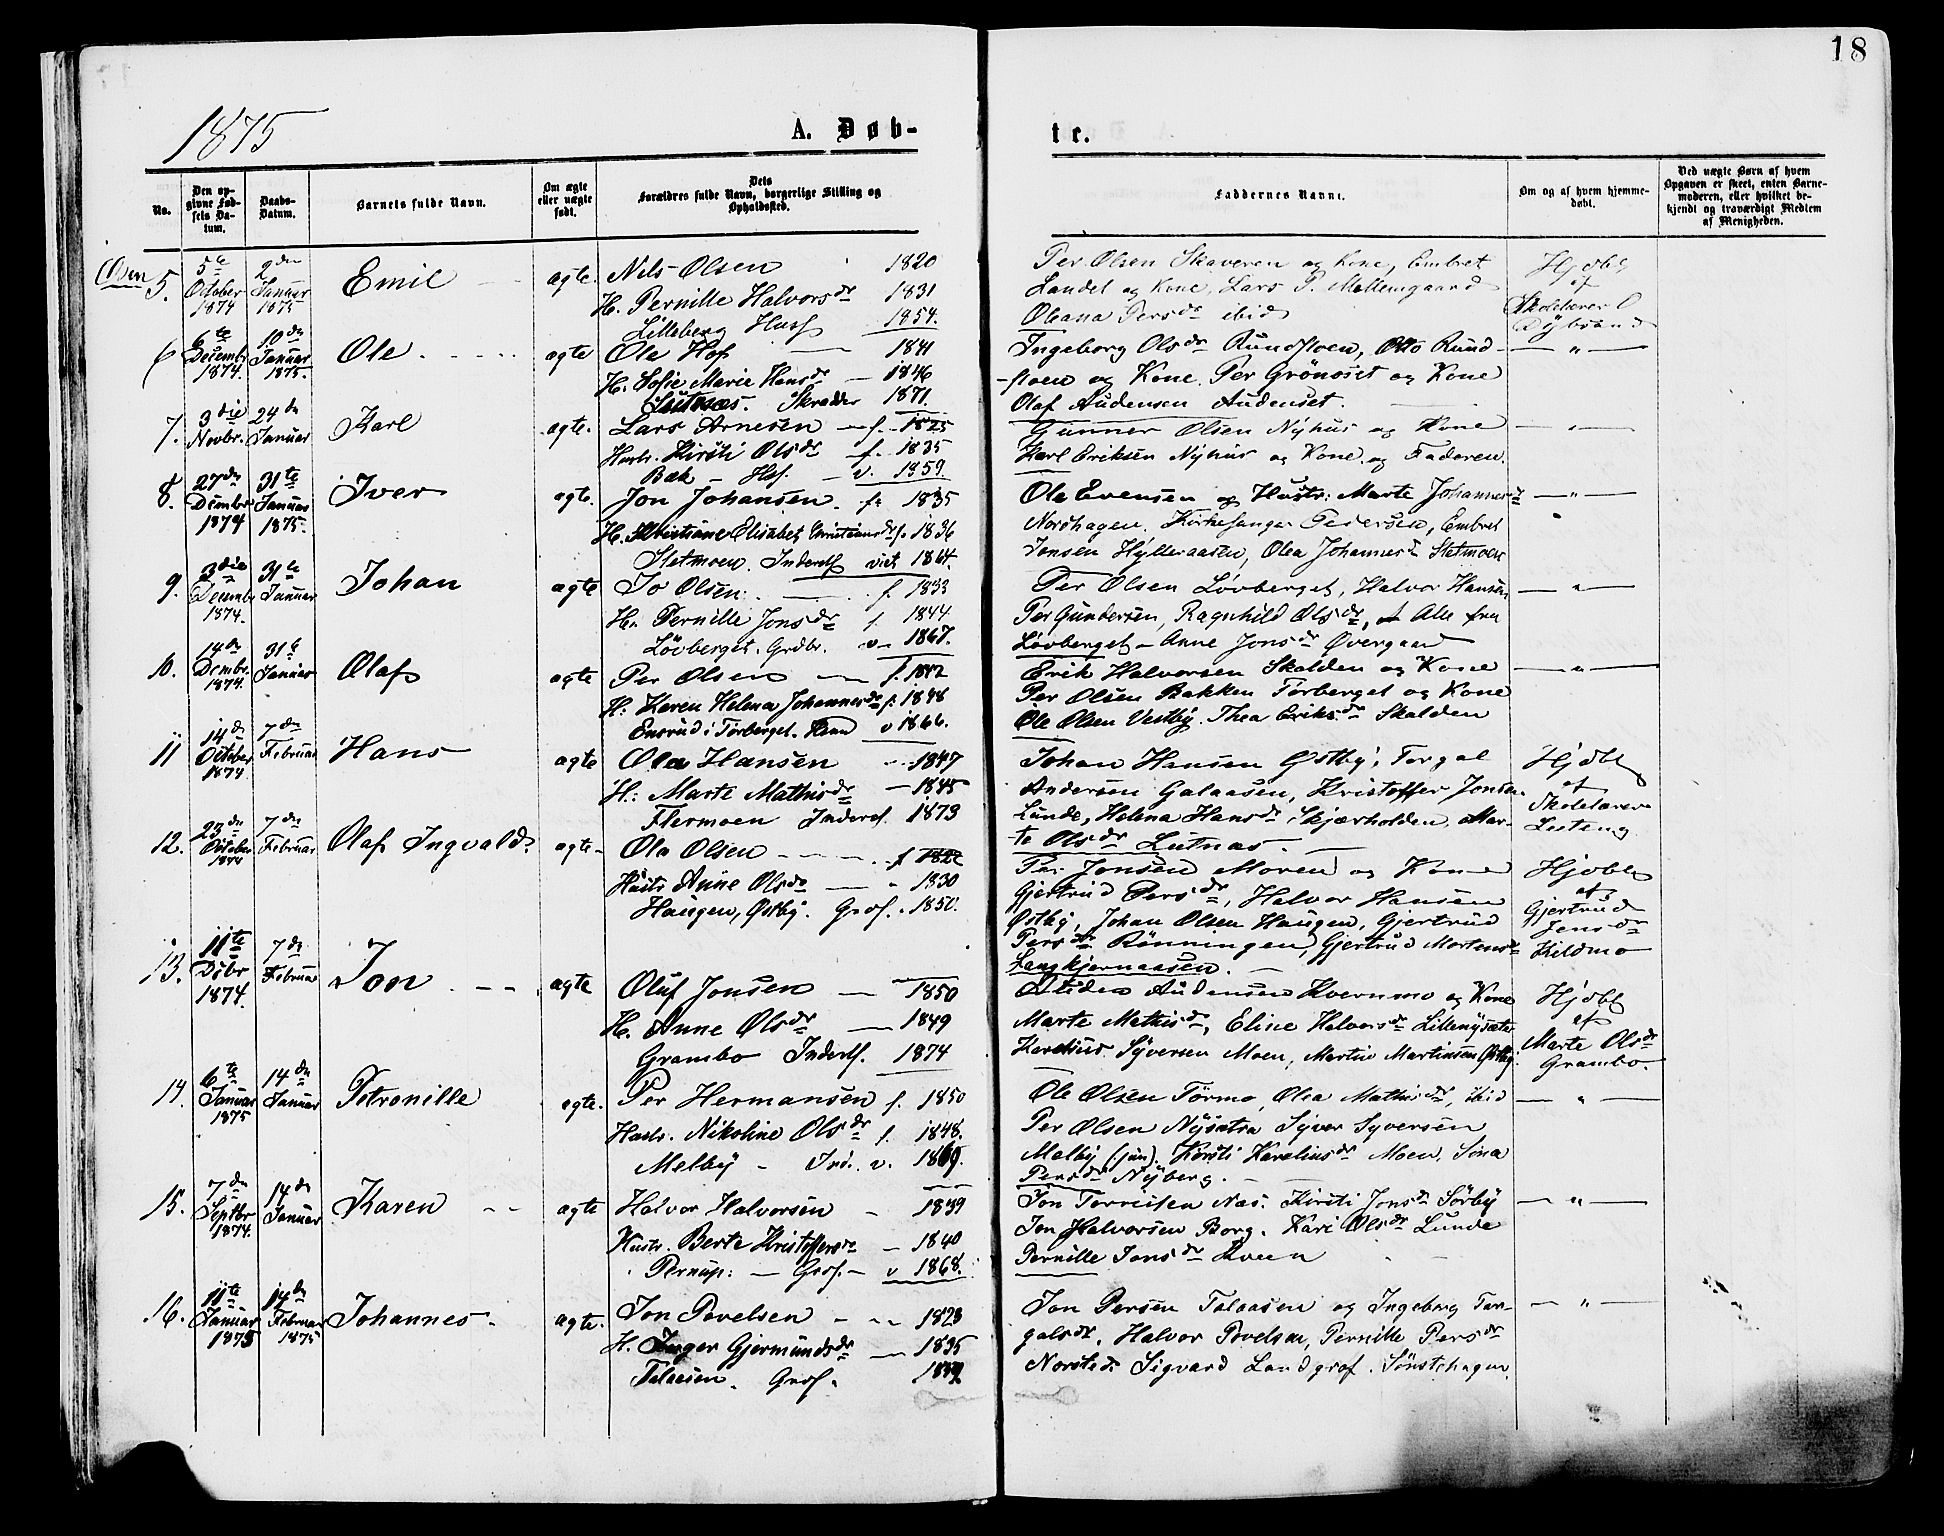 18
1875
A. Døb-
te.
No.
Den op-
givne Fød-
sels Da-
tum.
Daabs-
Datum.
Barnets fulde Navn.
Om ægte
eller uægte
født.
Dets
Forældres fulde Navn, borgerlige Stilling og
Opholdssted.
Faddernes Navne.
Om og af hvem hjemme-
døbt.
Ved uægte Børn af hvem
Opgaven er skeet, enten Barne-
moderen, eller hvilket be-
kjendt og troværdigt Medlem
af Menigheden.
Osen
5.
5te October 1874
2den Januar 1875
Emil
ægte.
Nels Olsen 1820
H. Pernille Halvorsdr 1831
Lilleberg Husf 1854.
Per Olsen Skaveren og Kone, Embret
Landet og Kone, Lars P. Mellemgaard
Oleana Persdr ibid
Hjdbt
af
Skolelærer O
Dybsand
6
6te Decembr 1874.
10de Januar 1875.
Ole
ægte
Ole Hof 1841
H. Sofie Marie Hansdr 1846
Lutnæs. Skrædder 1871.
Ingeborg Olsdr Rundfloen, Otto Rund-
-floen og Kone. Per Grønoset og Kone
Olaf Audensen Audenset.
— " —
7.
3die Novbr.
24de Januar
Karl
ægte.
Lars Arnesen f. 1825
Hustr. Kirsti Olsdr f. 1835
Bak — Hsf. — v. 1859.
Gunner Olsen Nyhus og Kone
Karl Eriksen Nyhus og Kone, og Faderen.
— " —
8.
27de Dcmbr 1874
31te Januar 1875.
Iver
ægte.
Jon Johansen. f. 1835
H. Kristiane Elisabet Christiansdr f. 1836
Stetmoen. Inderst viet 1864.
Ole Evensen og Hustr: Marte Johannesdr
Nordhagen. Kirkesanger Pedersen, Embret
Jonsen Hylleraasen, Olea Johannesdr Stetmoen
— " —
9.
3die Decembr 1874.
31te Januar
Johan
ægte
Jo Olsen. f. 1833
H. Pernille Jonsdr f. 1844
Løvberget. Grdbr. v. 1867.
Per Olsen Løvberget, Halvor Hansen
Per Gundersen, Ragnhild Olsdr, Alle fra
Løvberget — Anne Jonsdr Øvergaard
— " —
10.
14de Dcmbr. 1874.
31te Januar
Olaf
ægte
Per Olsen f. 1842
H: Karen Helena Johannesdr f. 1848
Ensrud i Tørberget. v 1866.
Erik Halvorsen Skolden og Kone
Per Olsen Bakken Tørberget og Kone
Ole Olsen Vestby. Thea Eriksdr Skolden
— " —
11
14de October 1874
7de Februar
Hans
ægte
Ola Hansen 1847
H: Marte Mathisdr 1845
Flermoen Inderst. 1873
Johan Hansen Østby, Torgal
Andersen Galaasen, Kristoffer Jonsen
Lunde, Helena Hansdr Skjærholden, Mar-
te Olsdr Lutnæs.
Hjdbt
af
Skolelærer
Luteng
12.
23de October 1874
7de Februar
Olaf Ingvald.
ægte
Ola Olsen f 1822
Hustr Anne Olsdr " 1830
Haugen, Østby. Grof. 1850.
Per Jonsen Moren og Kone
Gjertrud Persdr, Halvor Hansen
Østby, Johan Olsen Haugen, Gjertrud
Persdr Rønningen, Gjertrud Mortensdr
Langkjernaasen.
Hjdbt
af
Gjertrud
Jensdr
Kildmo
13.
11te Dcbr 1874.
7de Februar
Jon
ægte
Oluf Jonsen 1850
H. Anne Olsdr 1849
Grambo Inderst. 1874
Auden Audensen Kvernmo og Kone
Marte Mathisdr, Eline Halvorsdr Lillenysæter
Karelius Syversen Moen, Martin Martinsen Østby.
Hjdbt
af
Marte Olsdr
Grambo.
14.
6te Januar 1875
14de Januar
Petronille
ægte.
Per Hermansen f. 1850
Hustr. Nikoline Olsdr f. 1848.
Melby — Ind. v. 1869.
Ole Olsen Tørmo, Olea Mathisdr, ibid
Per Olsen Nysætra Syver Syversen
Melby (jun). Kirsti Kareliusdr Moen, Sina
Persdr Nyberg.
— " —
15.
7de Septbr 1874.
14de Januar
Karen
ægte
Halvor Halvorsen 1839
Hustr. Berte Kristoffersdr 1840
Pernup: — Grof. — v 1868.
Jon Torreisen Næs. Kirsti Jonsdr Sørby
Jon Halvorsen Borg. Kari Olsdr Lunde
Pernille Jonsdr Kveen
— " —
16.
11te Januar 1875
14de Februar 1875
Johannes.
ægte.
Jon Povelsen 1823
H. Inger Gjermundsdr 1835
Talaasen. Grof.
Jon Persen Talaasen og Ingeborg Tor-
galsdr. Halvor Povelsen, Pernille Persdr
Norsted. Sigvard Landgraf. Sønsthagen
— " —